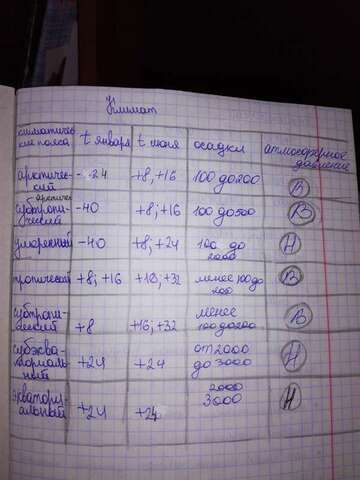 Климат
климатичес-
кие пояса t января t июня осадки атмосферное
давление
арктичес-
кий - 24 +8, +16 100 до 200 В
арктичес
субтропи-
ческий -40 +8; +16 100 до 500 В
умеренный -40 +8; +24 100 до
2000 Н
тропический +8; +16 +16, +32 менее 100 до
200 В
субтропи-
ческий +8 +16; +32 менее
100 до 200 В
субэква-
ториаль-
ный +24 +24 от 2000
до 3000 Н
экватори-
альный +24 +24 2000
3000 Н